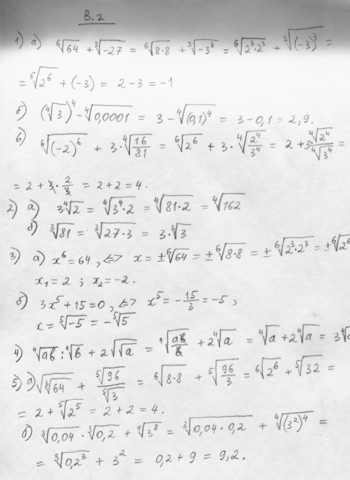 В.2
1) а) ⁶√64 + ³√-27 = ⁶√8·8 + ³√-3³ = ⁶√2³·2³ + ³√(-3)³ =
= ⁶√2⁶ + (-3) = 2-3 = -1
б) (⁴√3)⁴ - ⁴√0,0001 = 3 - ⁴√(0,1)⁴ = 3-0,1 = 2,9.
в) ⁶√(-2)⁶ + 3·⁴√16/81 = ⁶√2⁶ + 3·⁴√2⁴/3⁴ = 2 + 3·⁴√2⁴/⁴√3⁴ =
= 2 + 3·2/3 = 2+2 = 4.
2) а) 3⁴√2 = ⁴√3⁴·2 = ⁴√81·2 = ⁴√162
б) ³√81 = ³√27·3 = 3·³√3
3) а) x⁶=64, <=> x = ±⁶√64 = ±⁶√8·8 = ±⁶√2³·2³ = ±⁶√2⁶
x₁=2 ; x₂=-2.
б) 3x⁵+15=0, <=> x⁵ = -15/3 = -5,
x = ⁵√-5 = -⁵√5
4) ⁴√ab : ⁴√b + 2√√a = ⁴√ab/b + 2⁴√a = ⁴√a + 2⁴√a = 3⁴√a
5) а) √³√64 + ⁵√96/⁵√3 = ⁶√8·8 + ⁵√96/3 = ⁶√2⁶ + ⁵√32 =
= 2 + ⁵√2⁵ = 2+2 = 4.
б) ³√0,04 · ³√0,2 + ⁴√3⁸ = ³√0,04·0,2 + ⁴√(3²)⁴ =
= ³√0,2³ + 3² = 0,2+9 = 9,2.